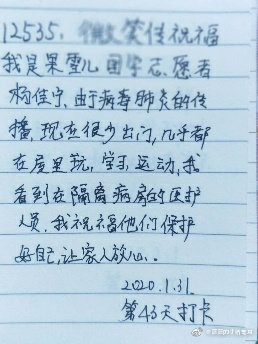 12535：微笑传祝福
我是果雪儿团学志愿者
杨佳宁，由于病毒肺炎的传
播，现在很少出门，几乎都
在屋里玩，学习，运动，我
看到在隔离病房的医护
人员，我祝福他们保护
好自己，让家人放心。
2020.1.31
第43天打卡